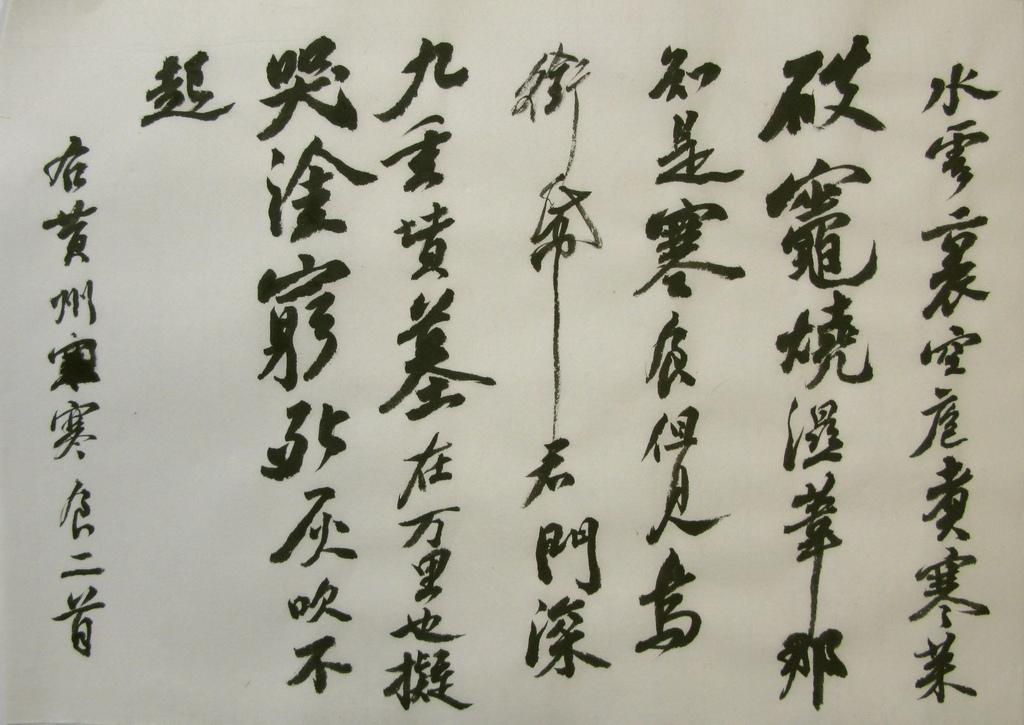 水雲裏空庖煑寒菜
破竈燒濕葦那
知是寒食但見烏
銜帋君門深
九重墳墓在万里也擬
哭塗窮死灰吹不
起
右黄州寒食二首